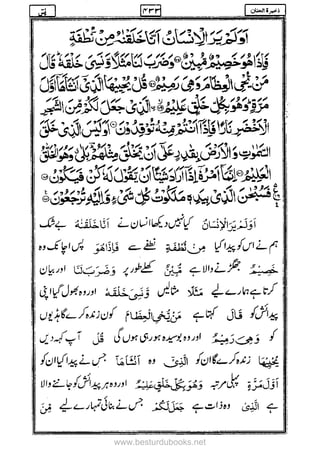 ذخيرة الجنان ۴۳۳ يٰسٓ
اَوَلَمْ يَرَ الْاِنْسَانُ اَنَّا خَلَقْنٰهُ مِنْ نُّطْفَةٍ
فَاِذَا هُوَ خَصِيْمٌ مُّبِيْنٌ وَضَرَبَ لَنَا مَثَلًا وَّنَسِيَ خَلْقَهٗ قَالَ
مَنْ يُّحْيِ الْعِظَامَ وَهِيَ رَمِيْمٌ قُلْ يُحْيِيْهَا الَّذِيْٓ اَنْشَاَهَآ اَوَّلَ
مَرَّةٍ وَهُوَ بِكُلِّ خَلْقٍ عَلِيْمٌ الَّذِيْ جَعَلَ لَكُمْ مِّنَ الشَّجَرِ
الْاَخْضَرِ نَارًا فَاِذَآ اَنْتُمْ مِّنْهُ تُوْقِدُوْنَ اَوَلَيْسَ الَّذِيْ خَلَقَ
السَّمٰوٰتِ وَالْاَرْضَ بِقٰدِرٍ عَلٰٓى اَنْ يَّخْلُقَ مِثْلَهُمْ بَلٰى وَهُوَ الْخَلّٰقُ
الْعَلِيْمُ اِنَّمَآ اَمْرُهٗٓ اِذَآ اَرَادَ شَيْـًٔا اَنْ يَّقُوْلَ لَهٗ كُنْ فَيَكُوْنُ
فَسُبْحٰنَ الَّذِيْ بِيَدِهٖ مَلَكُوْتُ كُلِّ شَيْءٍ وَّاِلَيْهِ تُرْجَعُوْنَ
اَوَلَمْ يَرَ الْاِنْسَانُ کیا نہیں دیکھا انسان نے اَنَّا خَلَقْنٰهُ بے شک
ہم نے اس کو پیدا کیا مِنْ نُّطْفَةٍ نطفے سے فَاِذَا هُوَ پس اچانک وہ
خَصِيْمٌ جھگڑنے والا ہے مُّبِيْنٌ کھلے طور پر وَضَرَبَ لَنَا اور بیان
کرتا ہے ہمارے لیے مَثَلًا مثالیں وَّنَسِيَ خَلْقَهٗ اور وہ بھول گیا اپنی
پیدائش کو قَالَ کہتا ہے مَنْ يُّحْيِ الْعِظَامَ کون زندہ کرے گا ہڈیوں
کو وَهِيَ رَمِيْمٌ اور وہ بوسیدہ ہو رہی ہوں گی قُلْ آپ کہہ دیں
يُحْيِيْهَا زندہ کرے گا ان کو الَّذِيْٓ وہ اَنْشَاَهَآ جس نے پیدا کیا ان کو
اَوَّلَ مَرَّةٍ پہلی مرتبہ وَهُوَ بِكُلِّ خَلْقٍ عَلِيْمٌ اور وہ ہر پیدائش کو جاننے والا
ہے الَّذِيْ وہ ذات ہے جَعَلَ لَكُمْ جس نے بنائی تمہارے لیے مِّنَ
www.besturdubooks.net